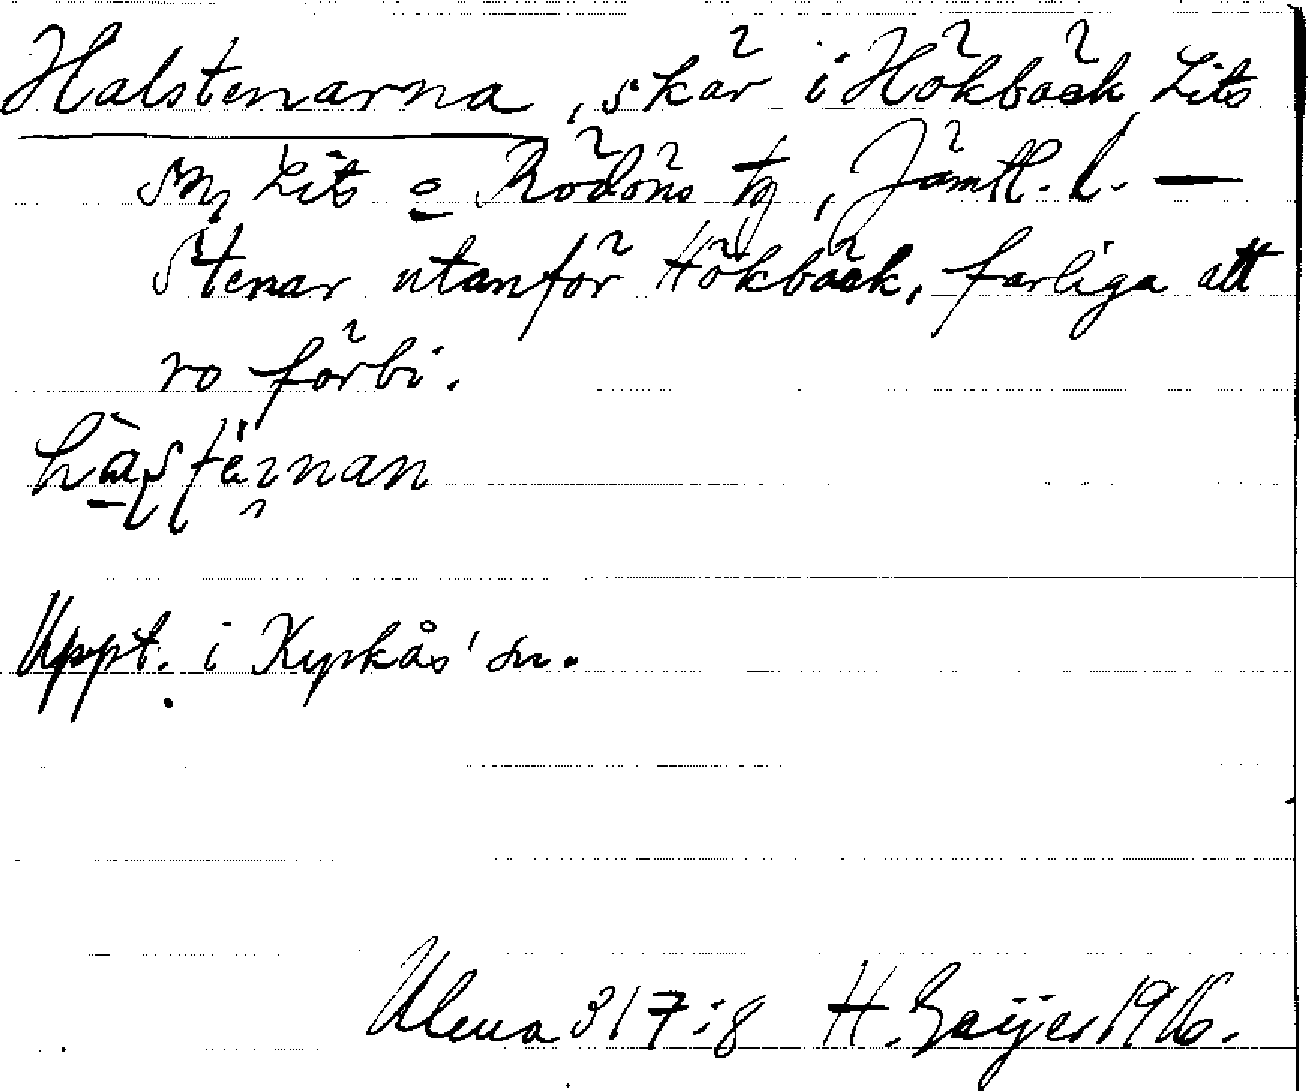 Halstenarna, skär i Hökbäck Lits
sn, Lits o Rödöns tg, Jämtl. l. —
Stenar utanför Hökbäck, farliga att
ro förbi.
Uppt. i Kyrkås' sn.
Ulma 317:8 H. Geijer 1916.